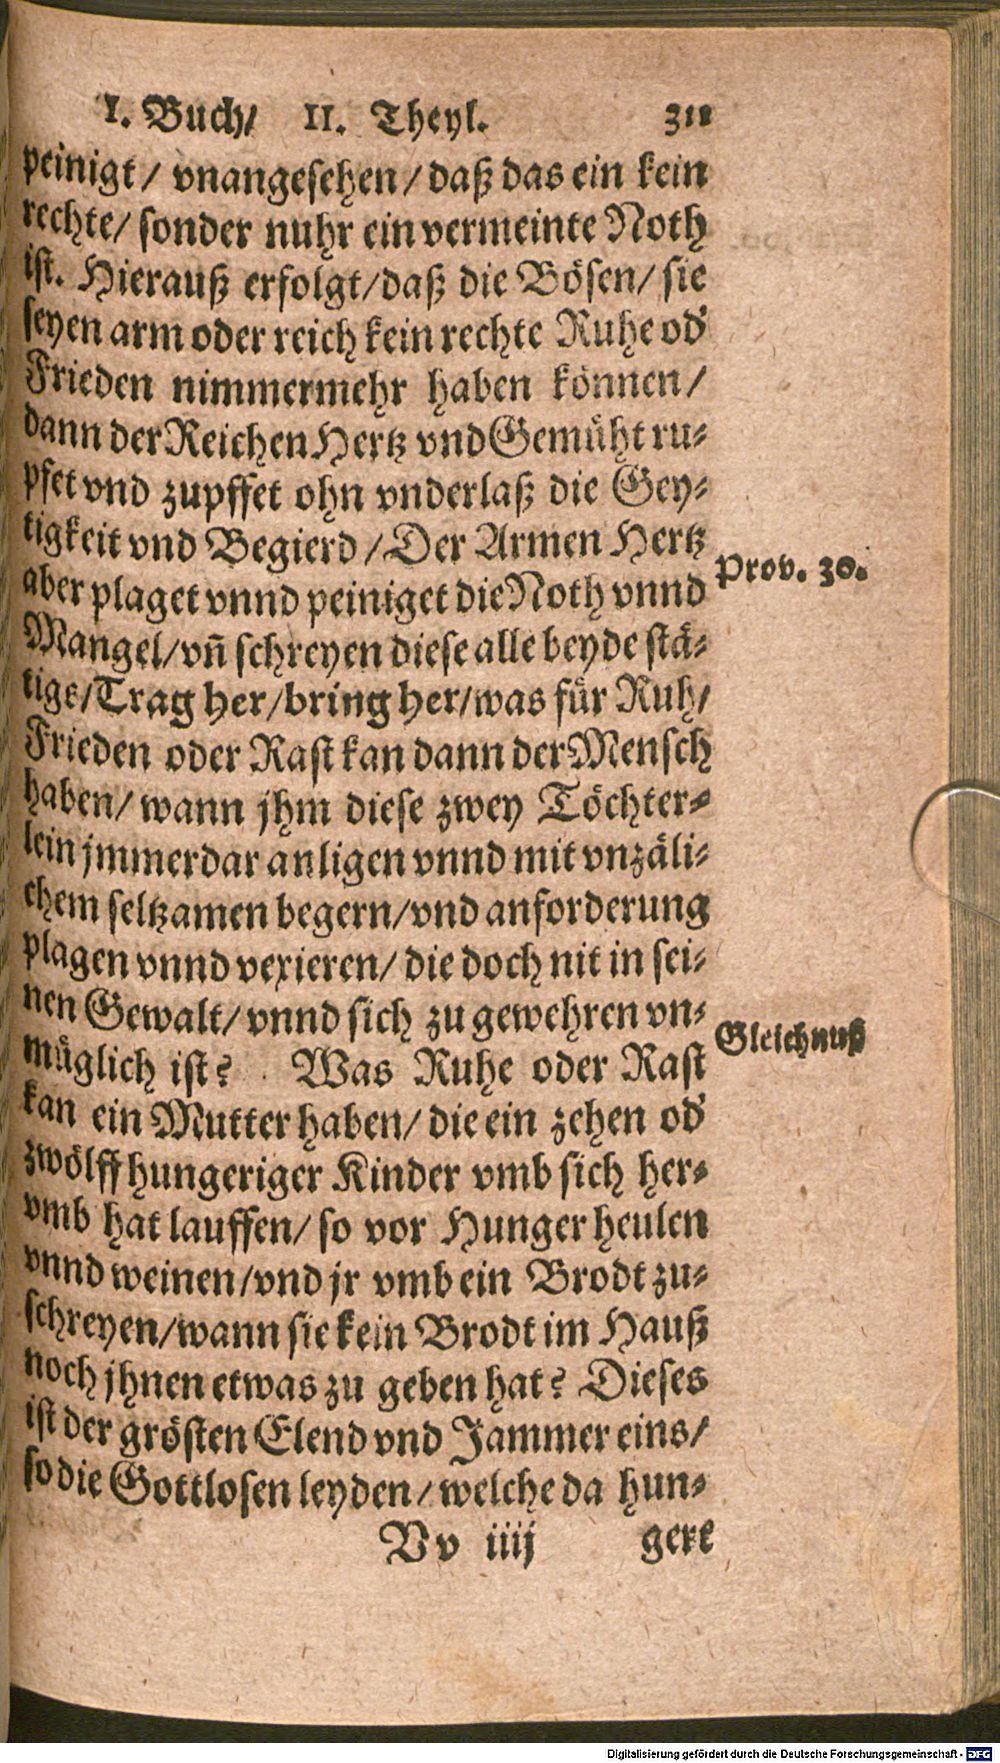 I. Buch/ II. Theyl. 311
peinigt/ vnangesehen/ daß das ein kein
rechte/ sonder nuhr ein vermeinte Noth
ist. Hierauß erfolgt/ daß die Bösen/ sie
seyen arm oder reich kein rechte Ruhe od'
Frieden nimmermehr haben können/
dann der Reichen Hertz vnd Gemüht ru-
pfet vnd zupffet ohn vnderlaß die Gey-
tigkeit vnd Begierd/ Der Armen Hertz
aber plaget vnnd peiniget die Noth vnnd
Prov. 30.
Mangel/ vn̄ schreyen diese alle beyde stä-
tigs/ Trag her/ bring her/ was für Ruh/
Frieden oder Rast kan dann der Mensch
haben/ wann jhm diese zwey Töchter-
lein jmmerdar anligen vnnd mit vnzäli-
chem seltzamen begern/ vnd anforderung
plagen vnnd vexieren/ die doch nit in sei-
nen Gewalt/ vnnd sich zu gewehren vn-
Gleichnuß
müglich ist? Was Ruhe oder Rast
kan ein Mutter haben/ die ein zehen od'
zwölff hungeriger Kinder vmb sich her-
vmb hat lauffen/ so vor Hunger heulen
vnnd weinen/ vnd jr vmb ein Brodt zu-
schreyen/ wann sie kein Brodt im Hauß
noch jhnen etwas zu geben hat? Dieses
ist der grösten Elend vnd Jammer eins/
so die Gottlosen leyden/ welche da hun-
Vv iiij gere
Digitalisierung gefördert durch die Deutsche Forschungsgemeinschaft - DFG